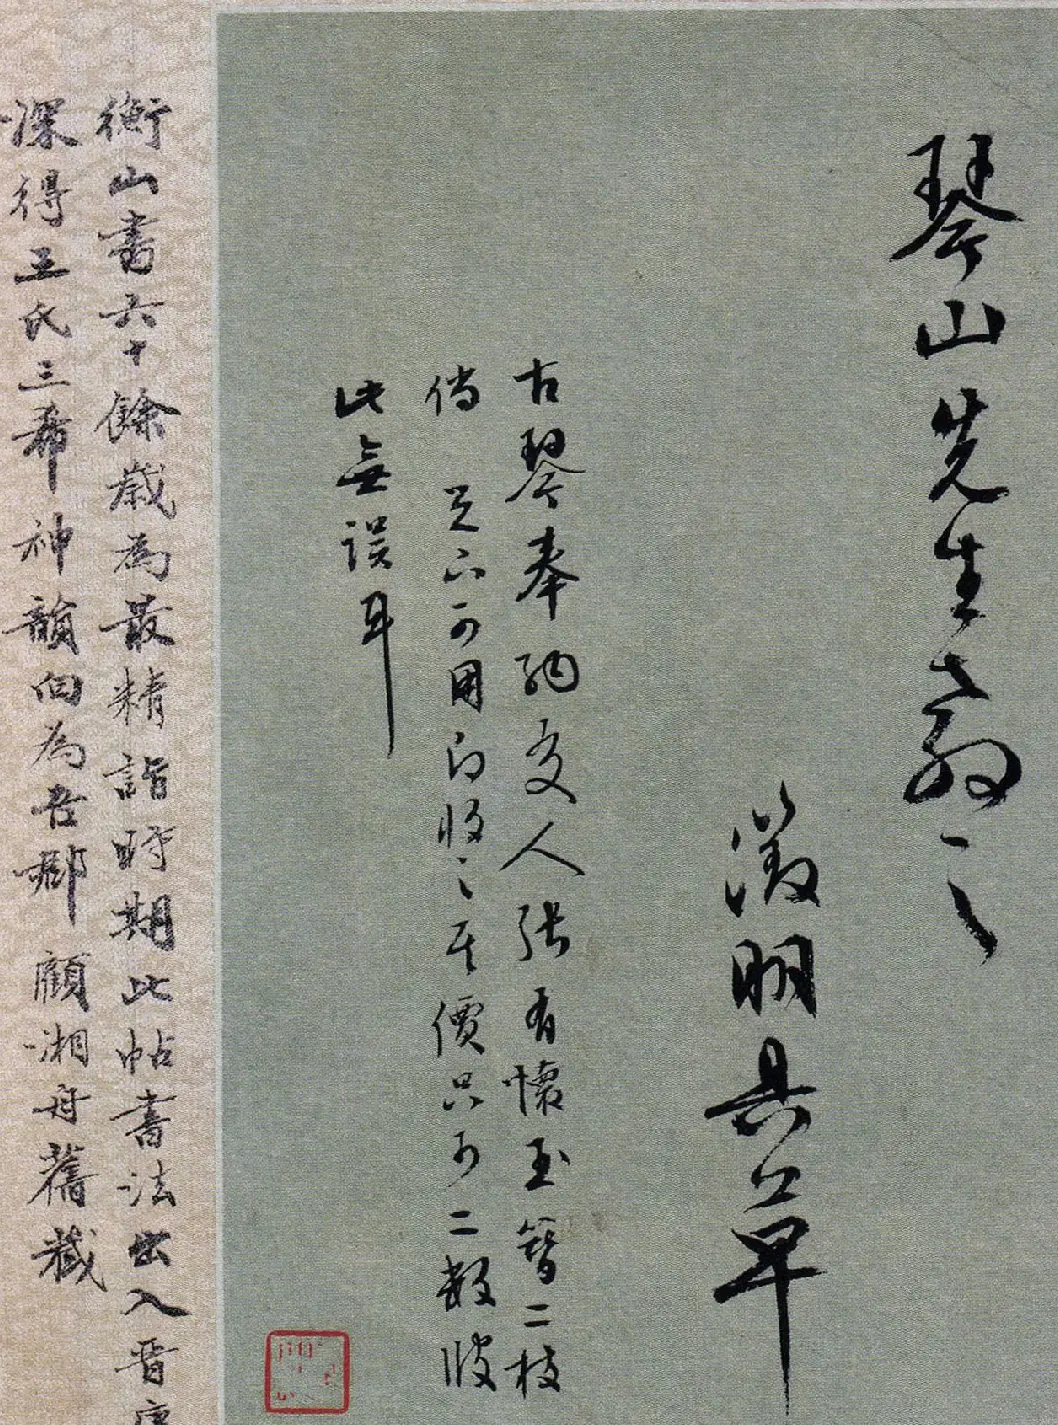 琴山先生
徵明具草
古琴奉納友人張有懷玉簪二枝
倘足下可用即收之其價只可二數彼
此無誤耳
衡山書六十餘歲為最精詣時期此帖書法出入晉唐
深得王氏三希神韻向為吾鄉顧湘舟舊藏